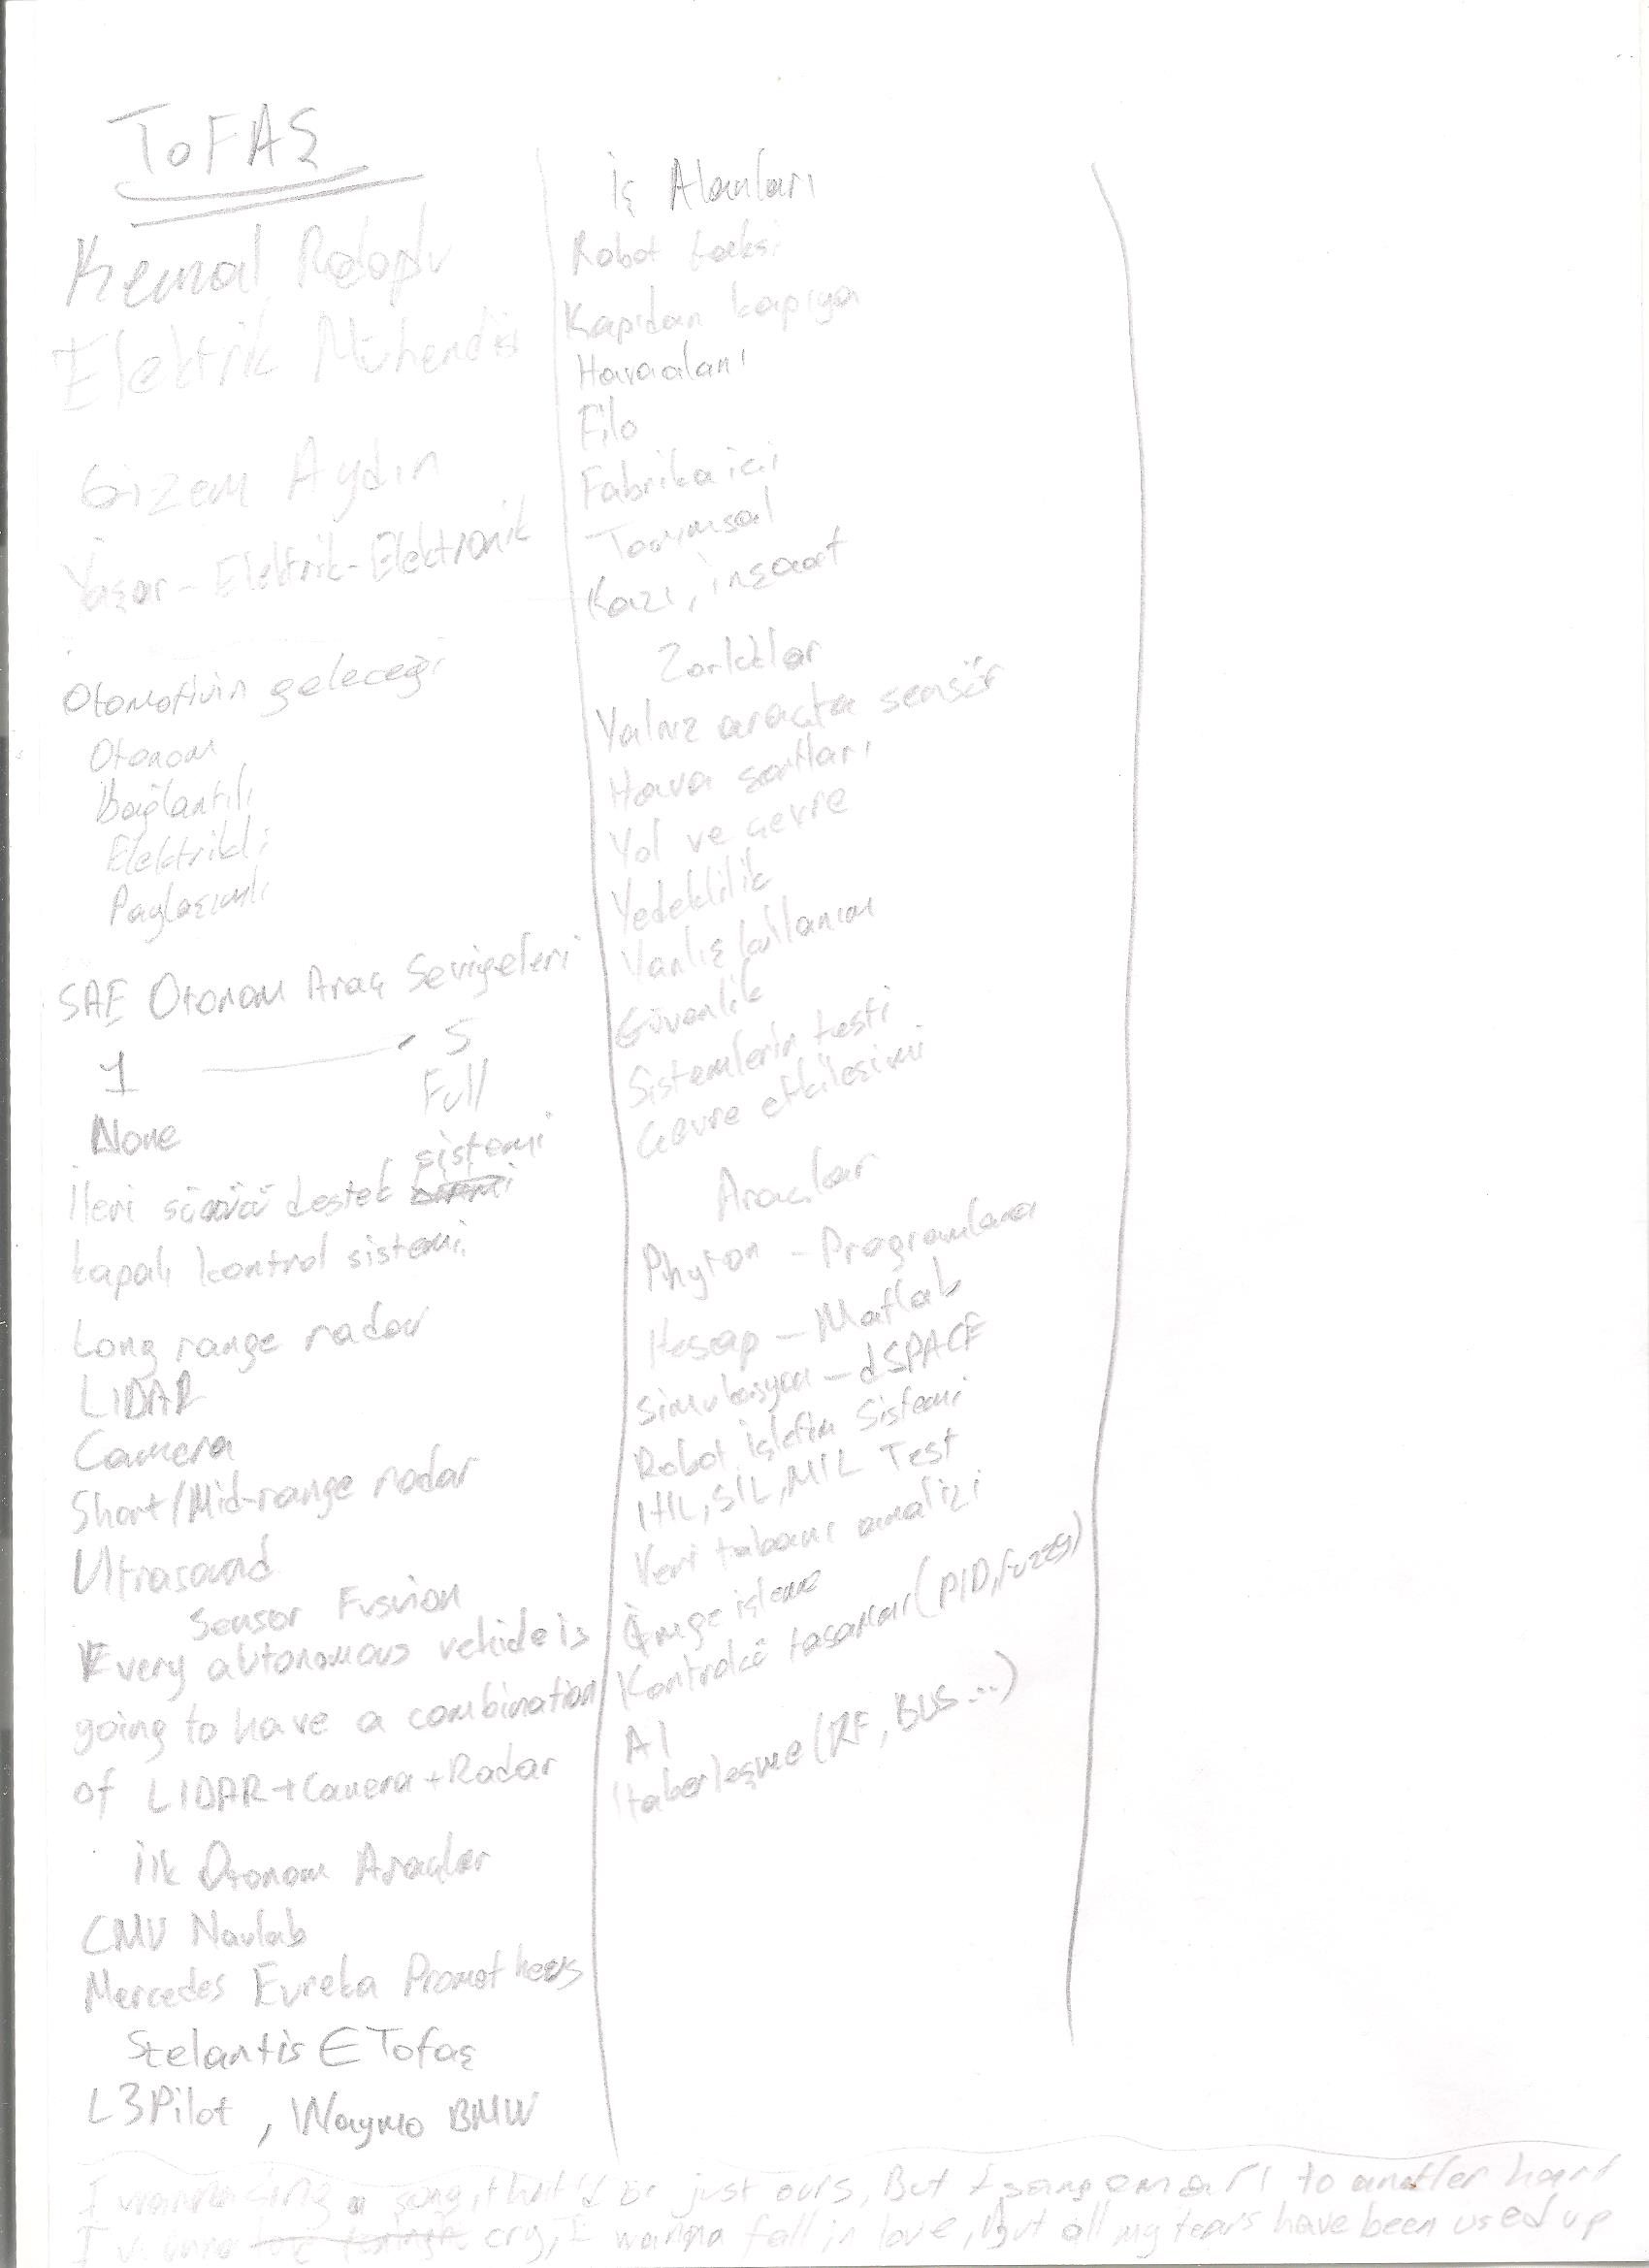 ToFAŞ
Kemal
Elektrik Mühendisi
Gizem Aydın
Yaşar - Elektrik-Elektronik
Otomotivin geleceği
Otonom
Bağlantılı
Elektrikli
Paylaşımlı
SAE Otonom Araç Seviyeleri
1 5
Full
None
İleri sürücü destek sistemi
kapalı kontrol sistemi
Long range radar
LIDAR
Camera
Short/Mid-range radar
Ultrasound
Sensor Fusion
Every autonomous vehicle is
going to have a combination
of LIDAR+Camera+Radar
İlk Otonom Araçlar
CMU Navlab
Mercedes Eureka Prometheus
Stelantis ∈ Tofaş
L3Pilot, Waymo BMW
İş Alanları
Robot taksi
Kapıdan kapıya
Havaalanı
Filo
Fabrika içi
Tarımsal
Kazı, inşaat
Zorluklar
Yalnız araçta sensör
Hava şartları
Yol ve çevre
Yedeklilik
Yanlış kullanım
Güvenlik
Sistemlerin testi
Çevre etkileşimi
Araçlar
Phyton - Programlama
Hesap - Matlab
Simulasyon - dSPACE
Robot İşletim Sistemi
HIL, SIL, MIL Test
Veri tabanı analizi
İmge işleme
Kontrolcü tasarlar (PID, fuzzy)
AI
Haberleşme (RF, BUS...)
I wanna sing a song, that'd be just ours, But I sang em all to another heart
I wanna cry, I wanna fall in love, But all my tears have been used up